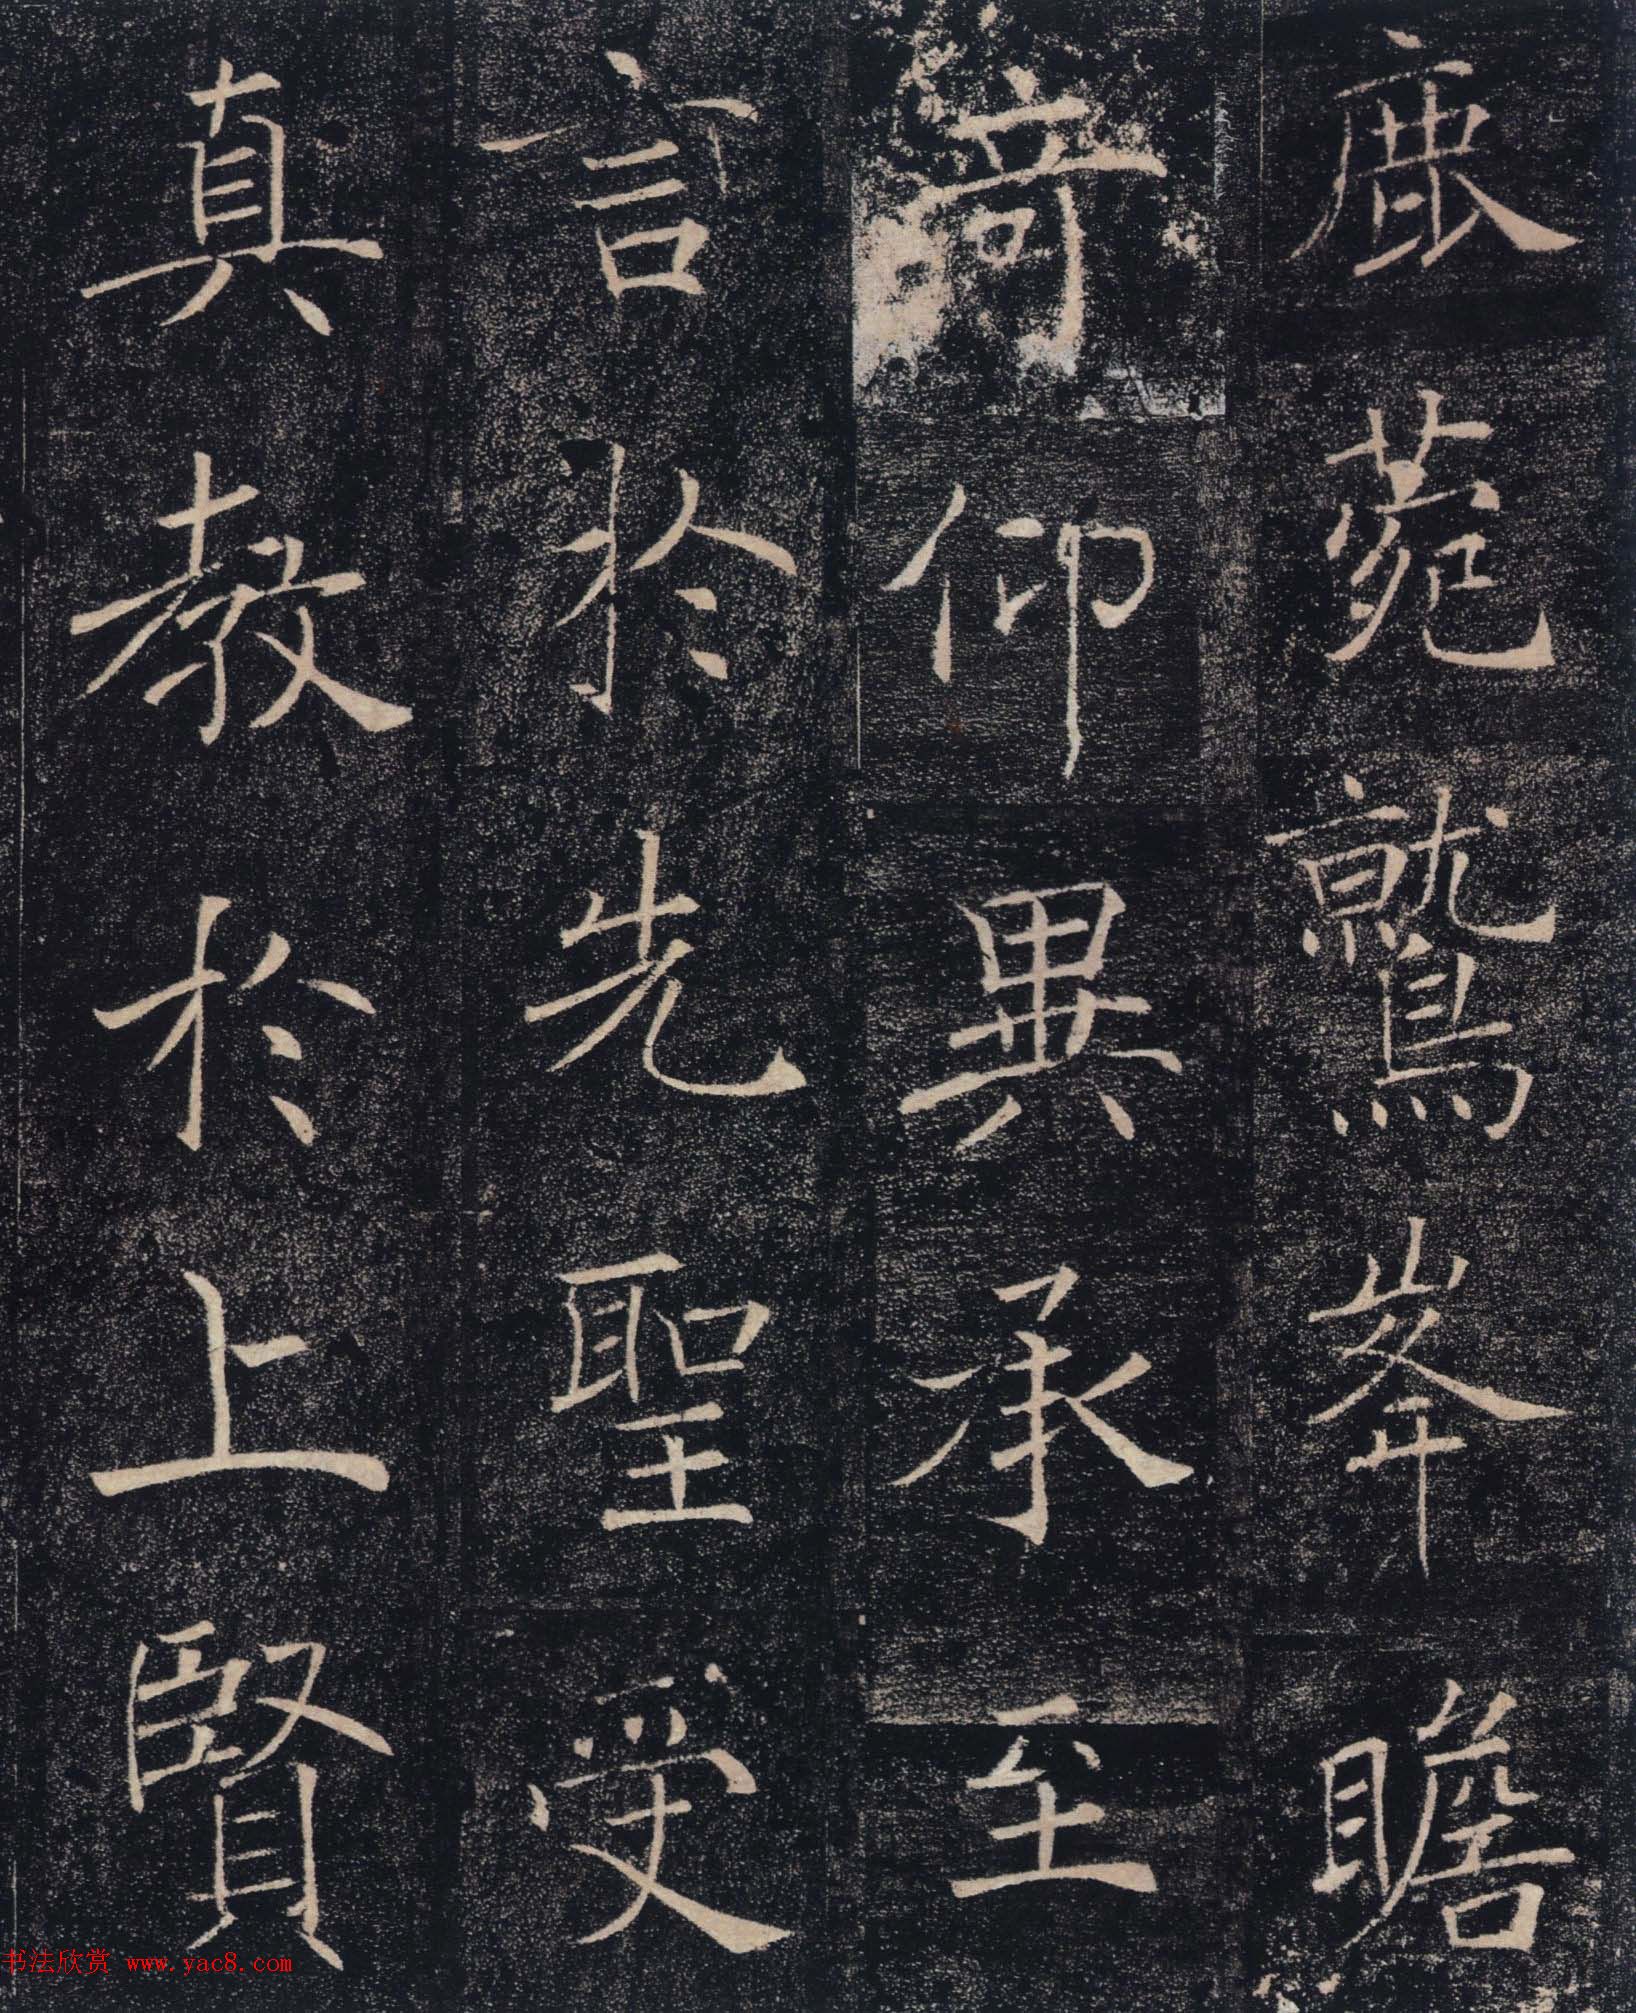 鹿菀鷲峯瞻
奇仰異承至
言於先聖受
真教於上賢
书法欣赏 www.yac8.com